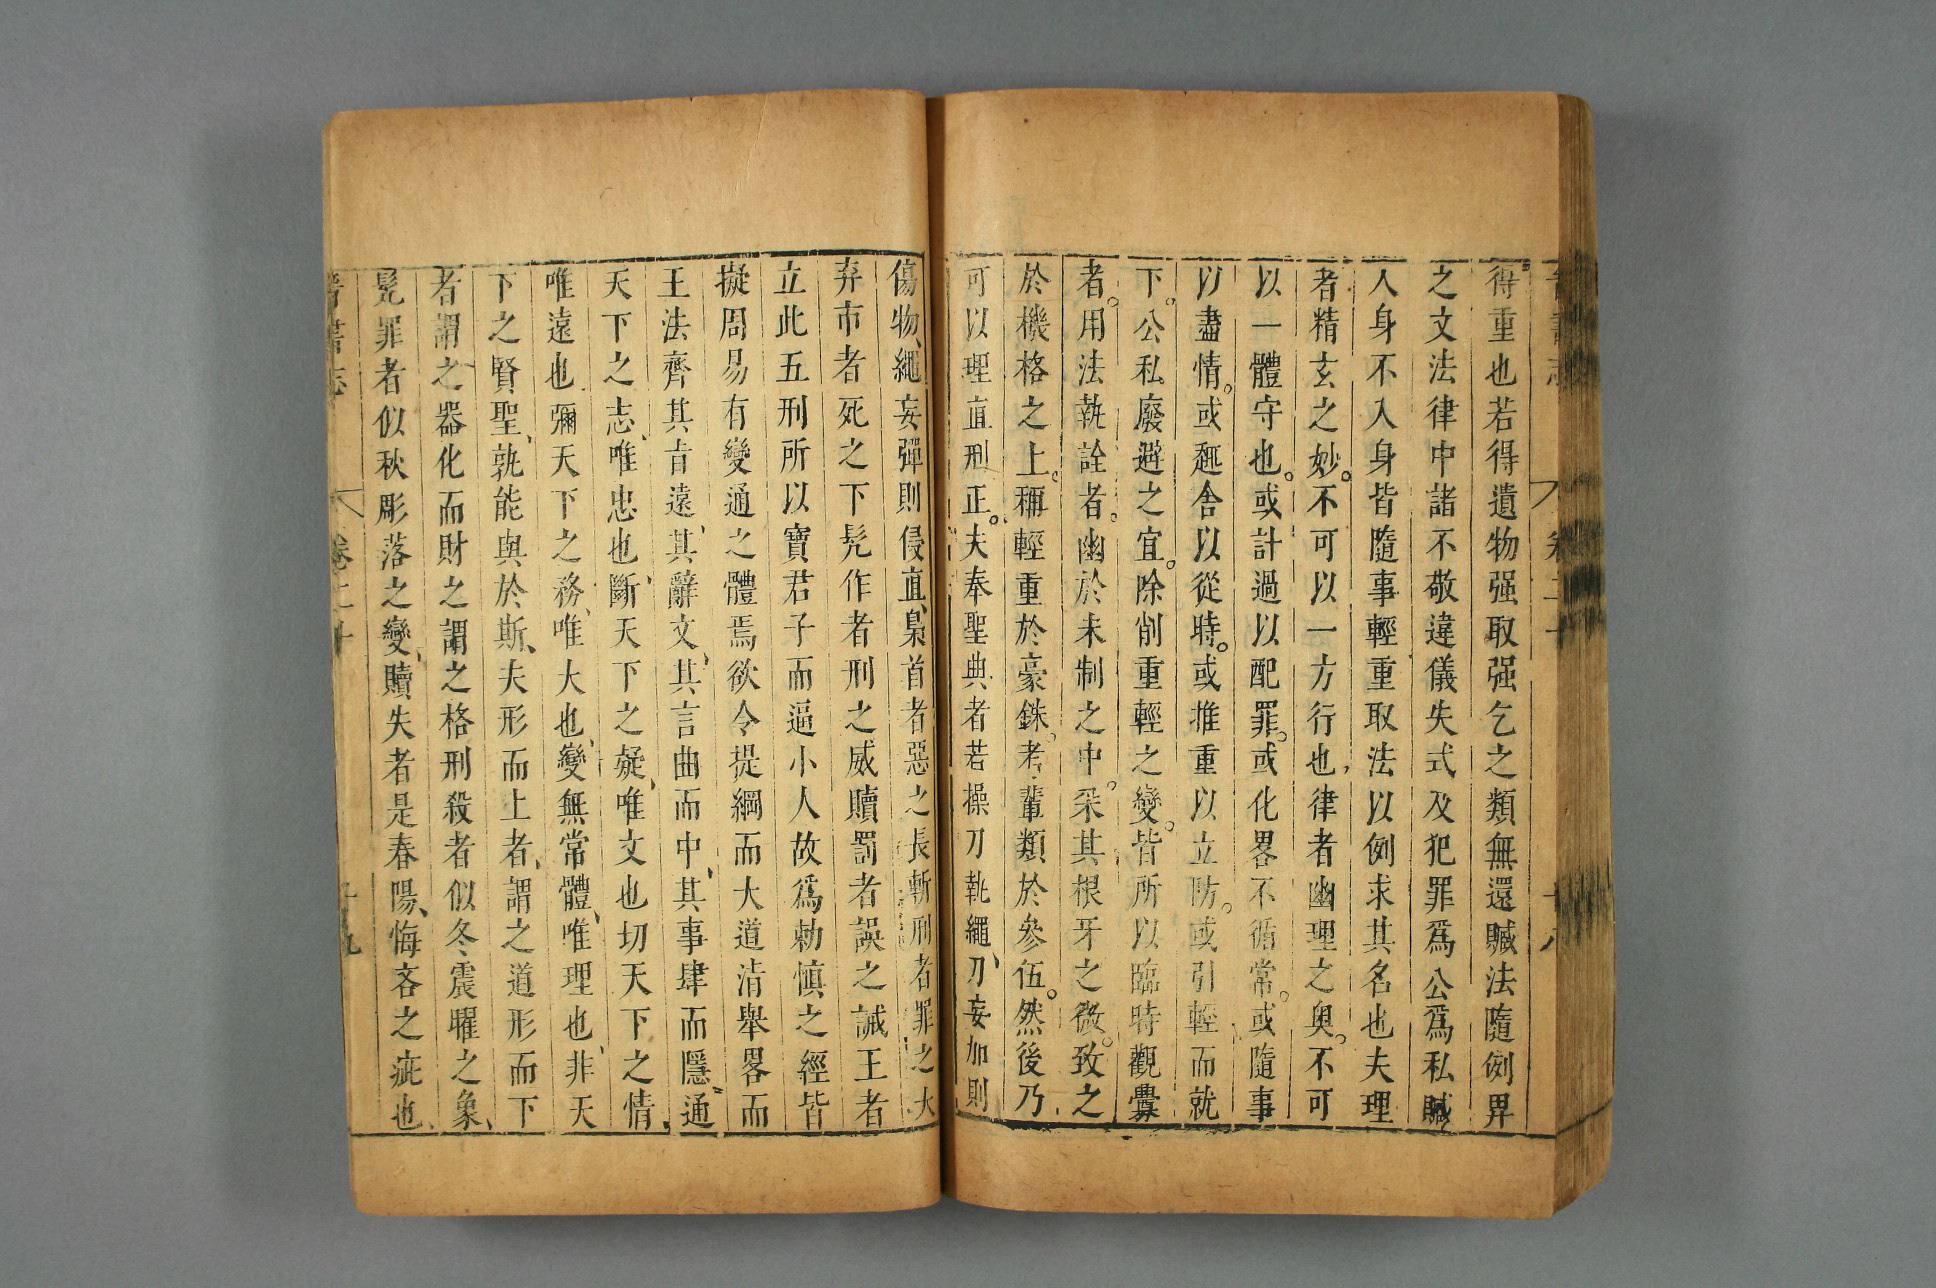 得重也若得遺物强取强乞之類無還贓法隨例畀
之文法律中諸不敬違儀失式及犯罪爲公爲私贓
入身不入身皆隨事輕重取法以例求其名也夫理
者精玄之妙。不可以一方行也,律者幽理之奧。不可
以一體守也。或計過以配罪。或化畧不循常。或隨事
以盡情。或趣舍以從時。或推重以立防。或引輕而就
下。公私廢避之宜。除削重輕之變。皆所以臨時觀釁
者。用法執詮者。幽於未制之中。采其根牙之微。致之
於機格之上。稱輕重於豪銖。考輩類於參伍。然後乃
可以理直刑正。夫奉聖典者若操刀執繩、刀妄加則
傷物、繩妄彈則侵直、梟首者惡之長斬刑者罪之大
弃市者死之下髠作者刑之威贖罰者誤之誡王者
立此五刑所以寶君子而逼小人故爲勅愼之經皆
擬周易有變通之體焉欲令提綱而大道清舉畧而
王法齊其旨遠、其辭文、其言曲而中、其事肆而隱、通
天下之志、唯忠也、斷天下之疑、唯文也切天下之情、
唯遠也彌天下之務、唯大也、變無常體、唯理也、非天
下之賢聖、孰能與於斯、夫形而上者、謂之道形而下
者謂之器化而財之謂之格刑殺者似冬震曜之象、
髠罪者似秋彫落之變、贖失者是春陽、悔吝之疵也、
晉書志 卷三十 十九